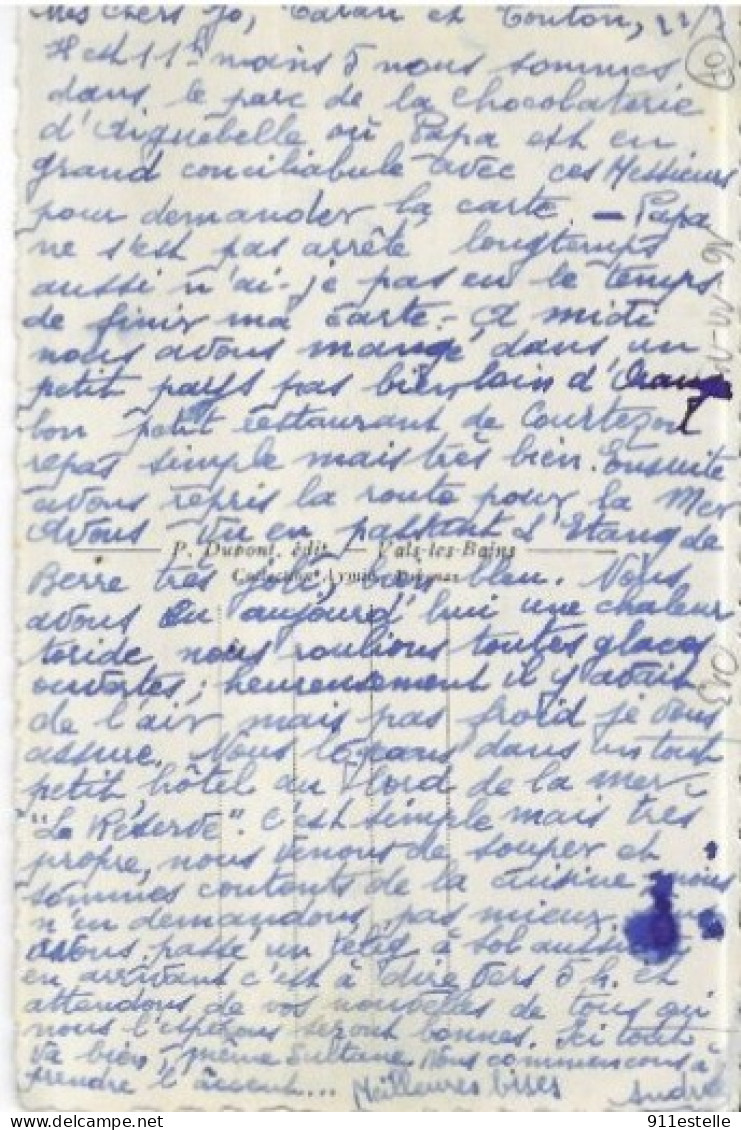 Mes chers Jo, et Tonton, 22/7
Il est 11h moins 5 nous sommes
dans le parc de la chocolaterie
d'Aiguebelle où Papa est en
grand conciliabule avec ces Messieurs
pour demander la carte. — Papa
ne s'est pas arrêté longtemps
aussi n'ai-je pas eu le temps
de finir ma carte. - A midi
nous avons mangé dans un
petit pays pas bien loin d'Orange
bon petit restaurant de Courtezon
repas simple mais très bien. Ensuite
avons repris la route pour la Mer
Avons vu en passant l'Etang de
P. Dupont, édit. — Vals-les-Bains
Berre très joli, bleu. Nous
avons eu aujourd'hui une chaleur
toride nous roulions toutes glaces
ouvertes; heureusement il y avait
de l'air mais pas froid je vous
assure. Nous logeons dans un tout
petit hôtel au bord de la mer
"La Réserve". C'est simple mais très
propre, nous venons de souper et
sommes contents de la cuisine nous
n'en demandons pas mieux.
avons passé un télég à
en arrivant c'est à dire vers 5 h. et
attendons de vos nouvelles de tous qui
nous l'espérons seront bonnes. Ici tout
va bien, même Sultane. Nous commençons à
prendre l'accent... Meilleures bises
911estelle